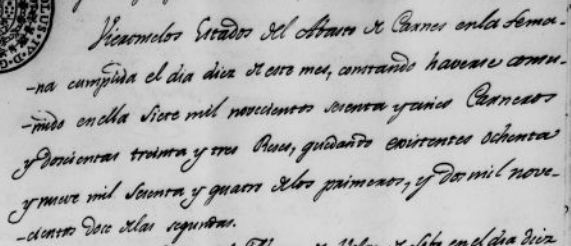 Vieronse los Estados del Abasto de Carnes en la sema-
-na cumplida el dia diez de este mes, constando haverse consu-
-mido en ella siete mil novecientos sesenta y cinco Carneros
y doscientas treinta y tres Reses, quedando existentes ochenta
y nueve mil sesenta y quatro de los primeros, y dos mil nove-
-cientos doce de las segundas.
en el dia diez